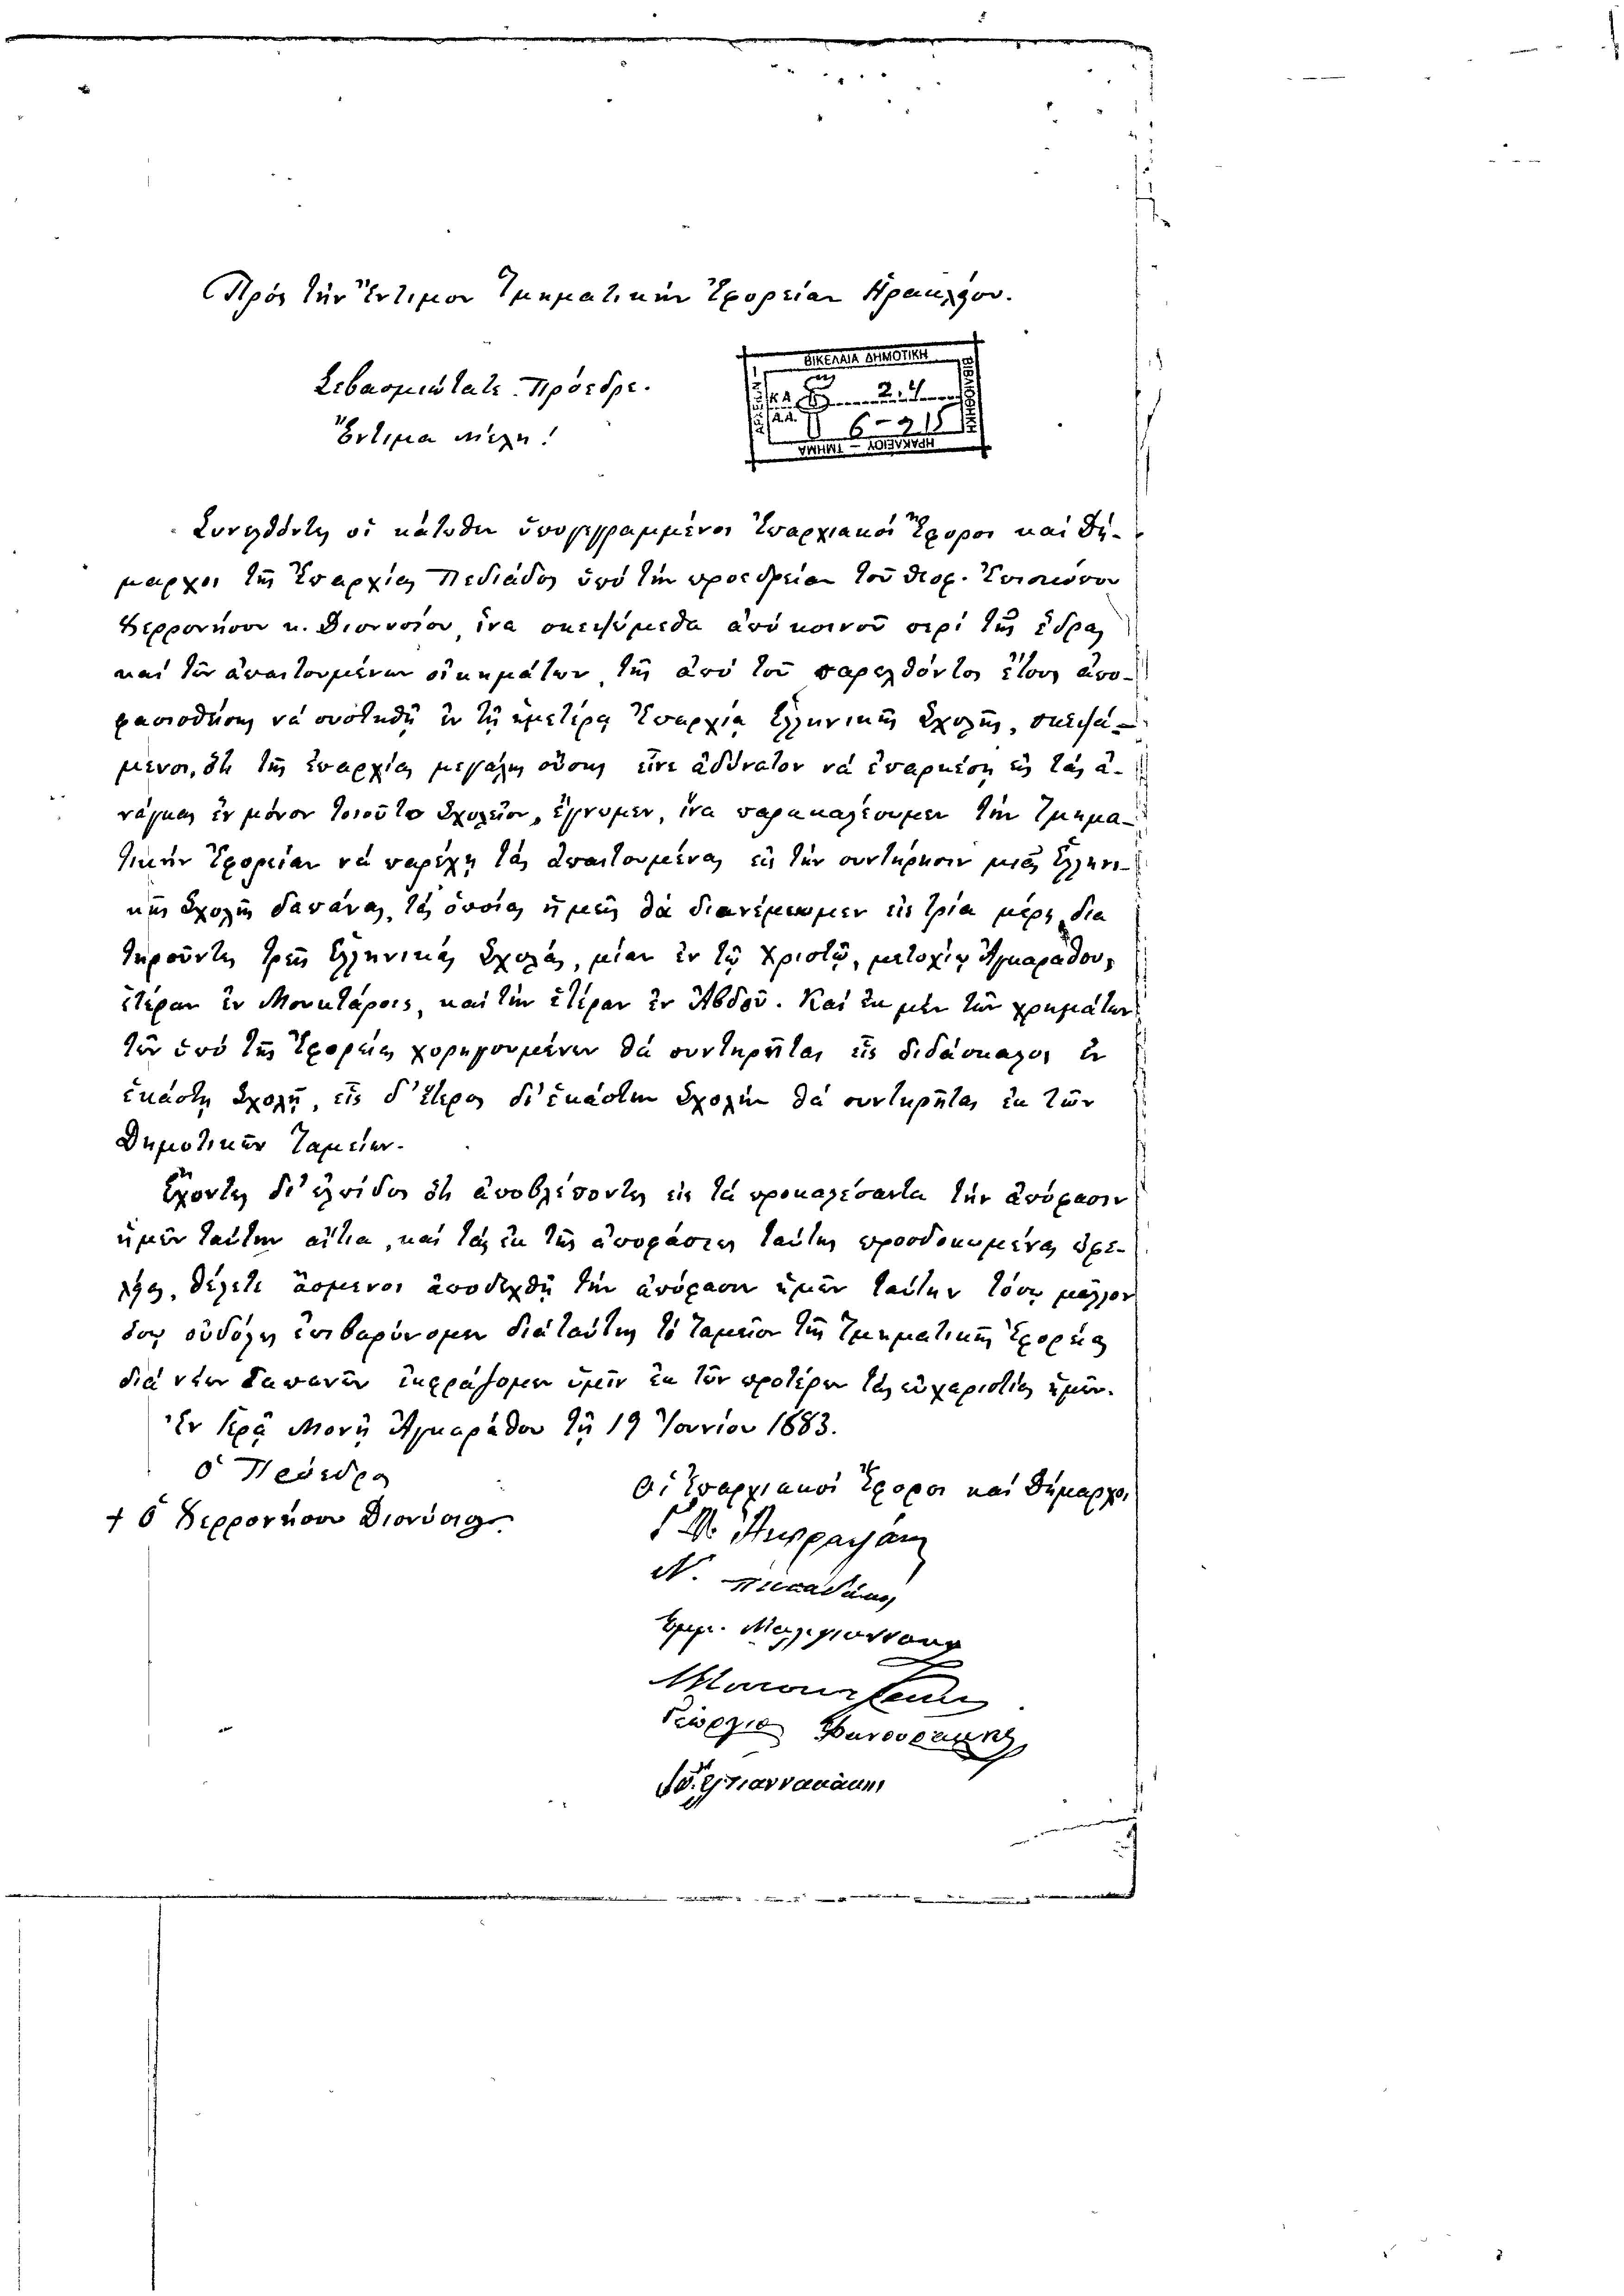 Πρός τήν Ἔντιμον Τμηματικήν Ἐφορείαν Ἡρακλείου.
Σεβασμιώτατε Πρόεδρε.
Ἔντιμα Μέλη!
ΒΙΚΕΛΑΙΑ ΔΗΜΟΤΙΚΗ
24
6-215
ΗΡΑΚΛΕΙΟΥ - ΤΜΗΜΑ
Συνελθόντες οἱ κάτωθεν ὑπογεγραμμένοι Ἐπαρχιακοί Ἔφοροι καί Δή-
μαρχοι τῆς Ἐπαρχίας Πεδιάδος ὑπό τήν προεδρείαν τοῦ θεοφ. Ἐπισκόπου
Χερρονήσου κ. Διονυσίου, ἵνα σκεψώμεθα ἀπό κοινοῦ περί τῆς ἕδρας
καί τῶν ἀπαιτουμένων οἰκημάτων, τῆς ἀπό τοῦ παρελθόντος ἔτους ἀπο-
φασισθείσης νά συστηθῇ ἐν τῇ ἡμετέρᾳ Ἐπαρχίᾳ Ἑλληνικῆς Σχολῆς, σκεψά-
μενοι, ὅτι τῆς ἐπαρχίας μεγάλης οὔσης εἶνε ἀδύνατον νά ἐπαρκέσῃ εἰς τάς ἀ-
νάγκας ἕν μόνον τοιοῦτο Σχολεῖον, ἔγνωμεν, ἵνα παρακαλέσωμεν τήν Τμημα-
τικήν Ἐφορείαν νά παρέχῃ τάς ἀπαιτουμένας εἰς τήν συντήρησιν μιᾶς Ἑλληνι-
κῆς Σχολῆς δαπάνας, τάς ὁποίας ἡμεῖς θά διανέμωμεν εἰς τρία μέρη δια
τηροῦντες τρεῖς Ἑλληνικάς Σχολάς, μίαν ἐν τῷ Χριστῷ, μετοχίῳ Ἀγκαράθου,
ἑτέραν ἐν Μουκτάροις, καί τήν ἑτέραν ἐν Ἀβδοῦ. Καί ἐκ μέν τῶν χρημάτων
τῶν ὑπό τῆς Ἐφορείας χορηγουμένων θά συντηρῆται εἷς διδάσκαλος ἐν
ἑκάστῃ Σχολῇ, εἷς δ' ἕτερος δι' ἑκάστην Σχολήν θά συντηρῆται ἐκ τῶν
Δημοτικῶν Ταμείων.
Ἔχοντες δι' ἐλπίδος ὅτι ἀποβλέποντες εἰς τά προκαλέσαντα τήν ἀπόφασιν
ἡμῶν ταύτην αἴτια, καί τάς ἐκ τῆς ἀποφάσεως ταύτης προσδοκωμένας ὠφε-
λείας, θέλετε ἄσμενοι ἀποδεχθῇ τήν ἀπόφασιν ἡμῶν ταύτην τόσῳ μᾶλλον
ὅσῳ οὐδόλως ἐπιβαρύνομεν διά ταύτης τό Ταμεῖον τῆς Τμηματικῆς Ἐφορείας
διά νέων δαπανῶν ἐκφράζομεν ὑμῖν ἐκ τῶν προτέρων τάς εὐχαριστίας ἡμῶν.
Ἐν Ἱερᾷ Μονῇ Ἀγκαράθου τῇ 19 Ἰουνίου 1883.
Ὁ Πρόεδρος
Οἱ Ἐπαρχιακοί Ἔφοροι καί Δήμαρχοι
+ Ὁ Χερρονήσου Διονύσιος
Ν.
Ἐμμ.
Γεώργιος